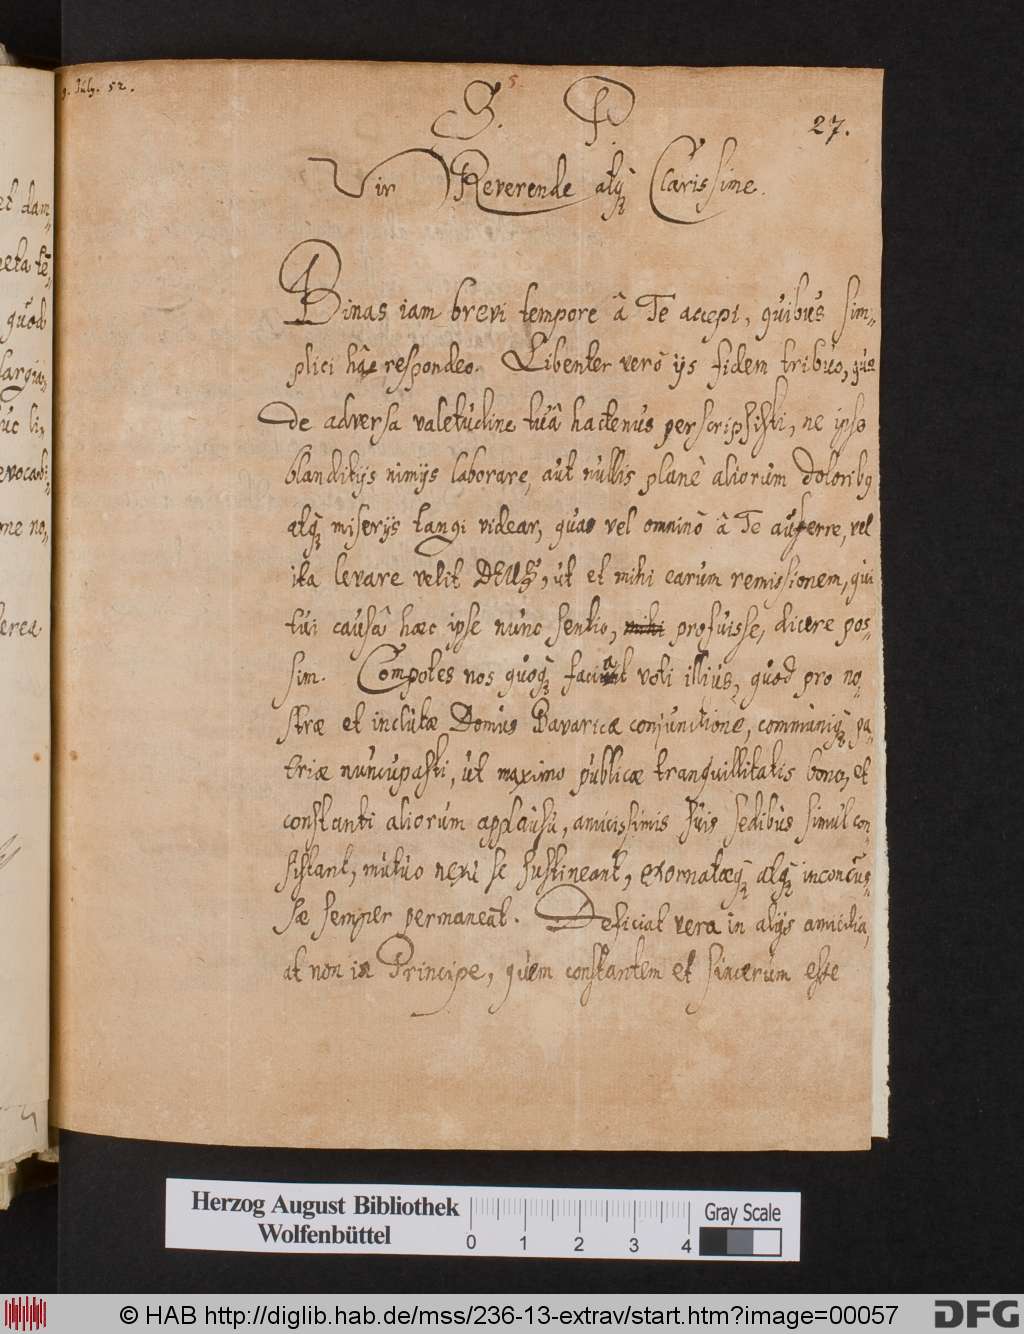 9. July. 52.
5.
S. P.
27.
Vir Reverende atq; Clarissime.
Binas iam brevi tempore â Te accepi, quibus sim-
plici hâc respondeo. Libenter verò ijs fidem tribuo, quæ
de adversa valetudine tuâ hactenus perscripsisti, ne ipse
blanditijs nimijs laborare, aut nullis planè aliorum doloribq
atq; miserijs tangi videar, quas vel omninò â Te auferre, vel
ita levare velit DEUS, ut et mihi earum remissionem, qui
tui causâ hæc ipse nunc sentio, mihi profuisse, dicere pos-
sim. Compotes nos quoq; faciat voti illius, quod pro no-
stræ et inclutæ Domus Bavaricæ conjunctione, communiq; pa-
triæ nuncupasti, ut maximo publicæ tranquillitatis bono, et
constanti aliorum applausu, amicissimis suis sedibus simul con-
sistant, mutuo nexu se sustineant, exornatæq; atq; inconcus-
sæ semper permaneāt. Deficiat vera in alijs amicitia,
at non in Principe, quem constantem et sincerum esse
et dam-
peta tē-
quod
largia-
uc li-
evocab-
me no-
terea
Herzog August Bibliothek
Wolfenbüttel
0 1 2 3 4
Gray Scale
© HAB http://diglib.hab.de/mss/236-13-extrav/start.htm?image=00057
DFG